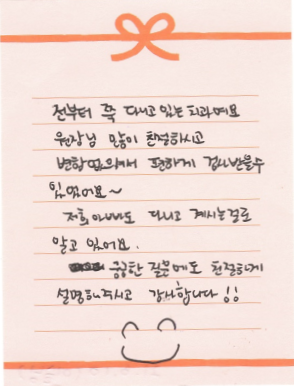 전부터 쭉 다니고 있는 치과예요
원장님 많이 친절하시고
변함없으셔서 편하게 검사받을수
있었어요~
저희 아빠도 다니고 계시는걸로
알고 있어요.
궁금한 질문에도 친절하게
설명해주시고 감사합니다!!